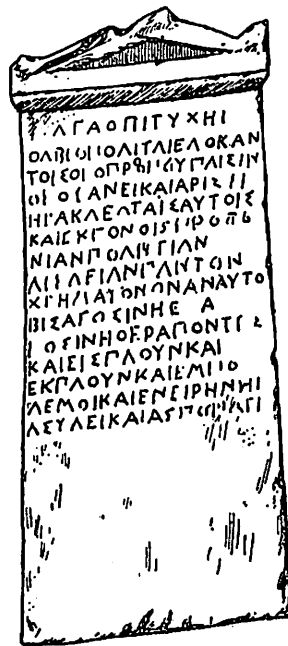 ΑΓΑΘΗΙΤΥΧΗΙ
ΟΛΒΙΟΠΟΛΙΤΑΙΕΔΩΚΑΝ
ΤΟΙΣ ΠΑΙΣΙΝ
ΗΡΑΚΛΕΩΤΑΙΣΑΥΤΟΙΣ
ΚΑΙΕΚΓΟΝΟΙΣΠΡΟΞΕ
ΝΙΑΝΠΟΛΙΤΕΙΑΝ
ΑΤΕΛΕΙΑΝΠΑΝΤΩΝ
ΧΡΗΜΑΤΩΝΩΝΑΝΑΥΤΟ
ΙΕΙΣΑΓΩΣΙΝΗΕ Α
ΓΩΣΙΝΗΘΕΡΑΠΟΝΤΕΣ
ΚΑΙΕΙΣΠΛΟΥΝΚΑΙ
ΕΚΠΛΟΥΝΚΑΙΕΜΠΟ
ΛΕΜΩΙΚΑΙΕΝΕΙΡΗΝΗΙ
ΑΣΥΛΕΙΚΑΙΑΣΠΟΝΔΕΙ